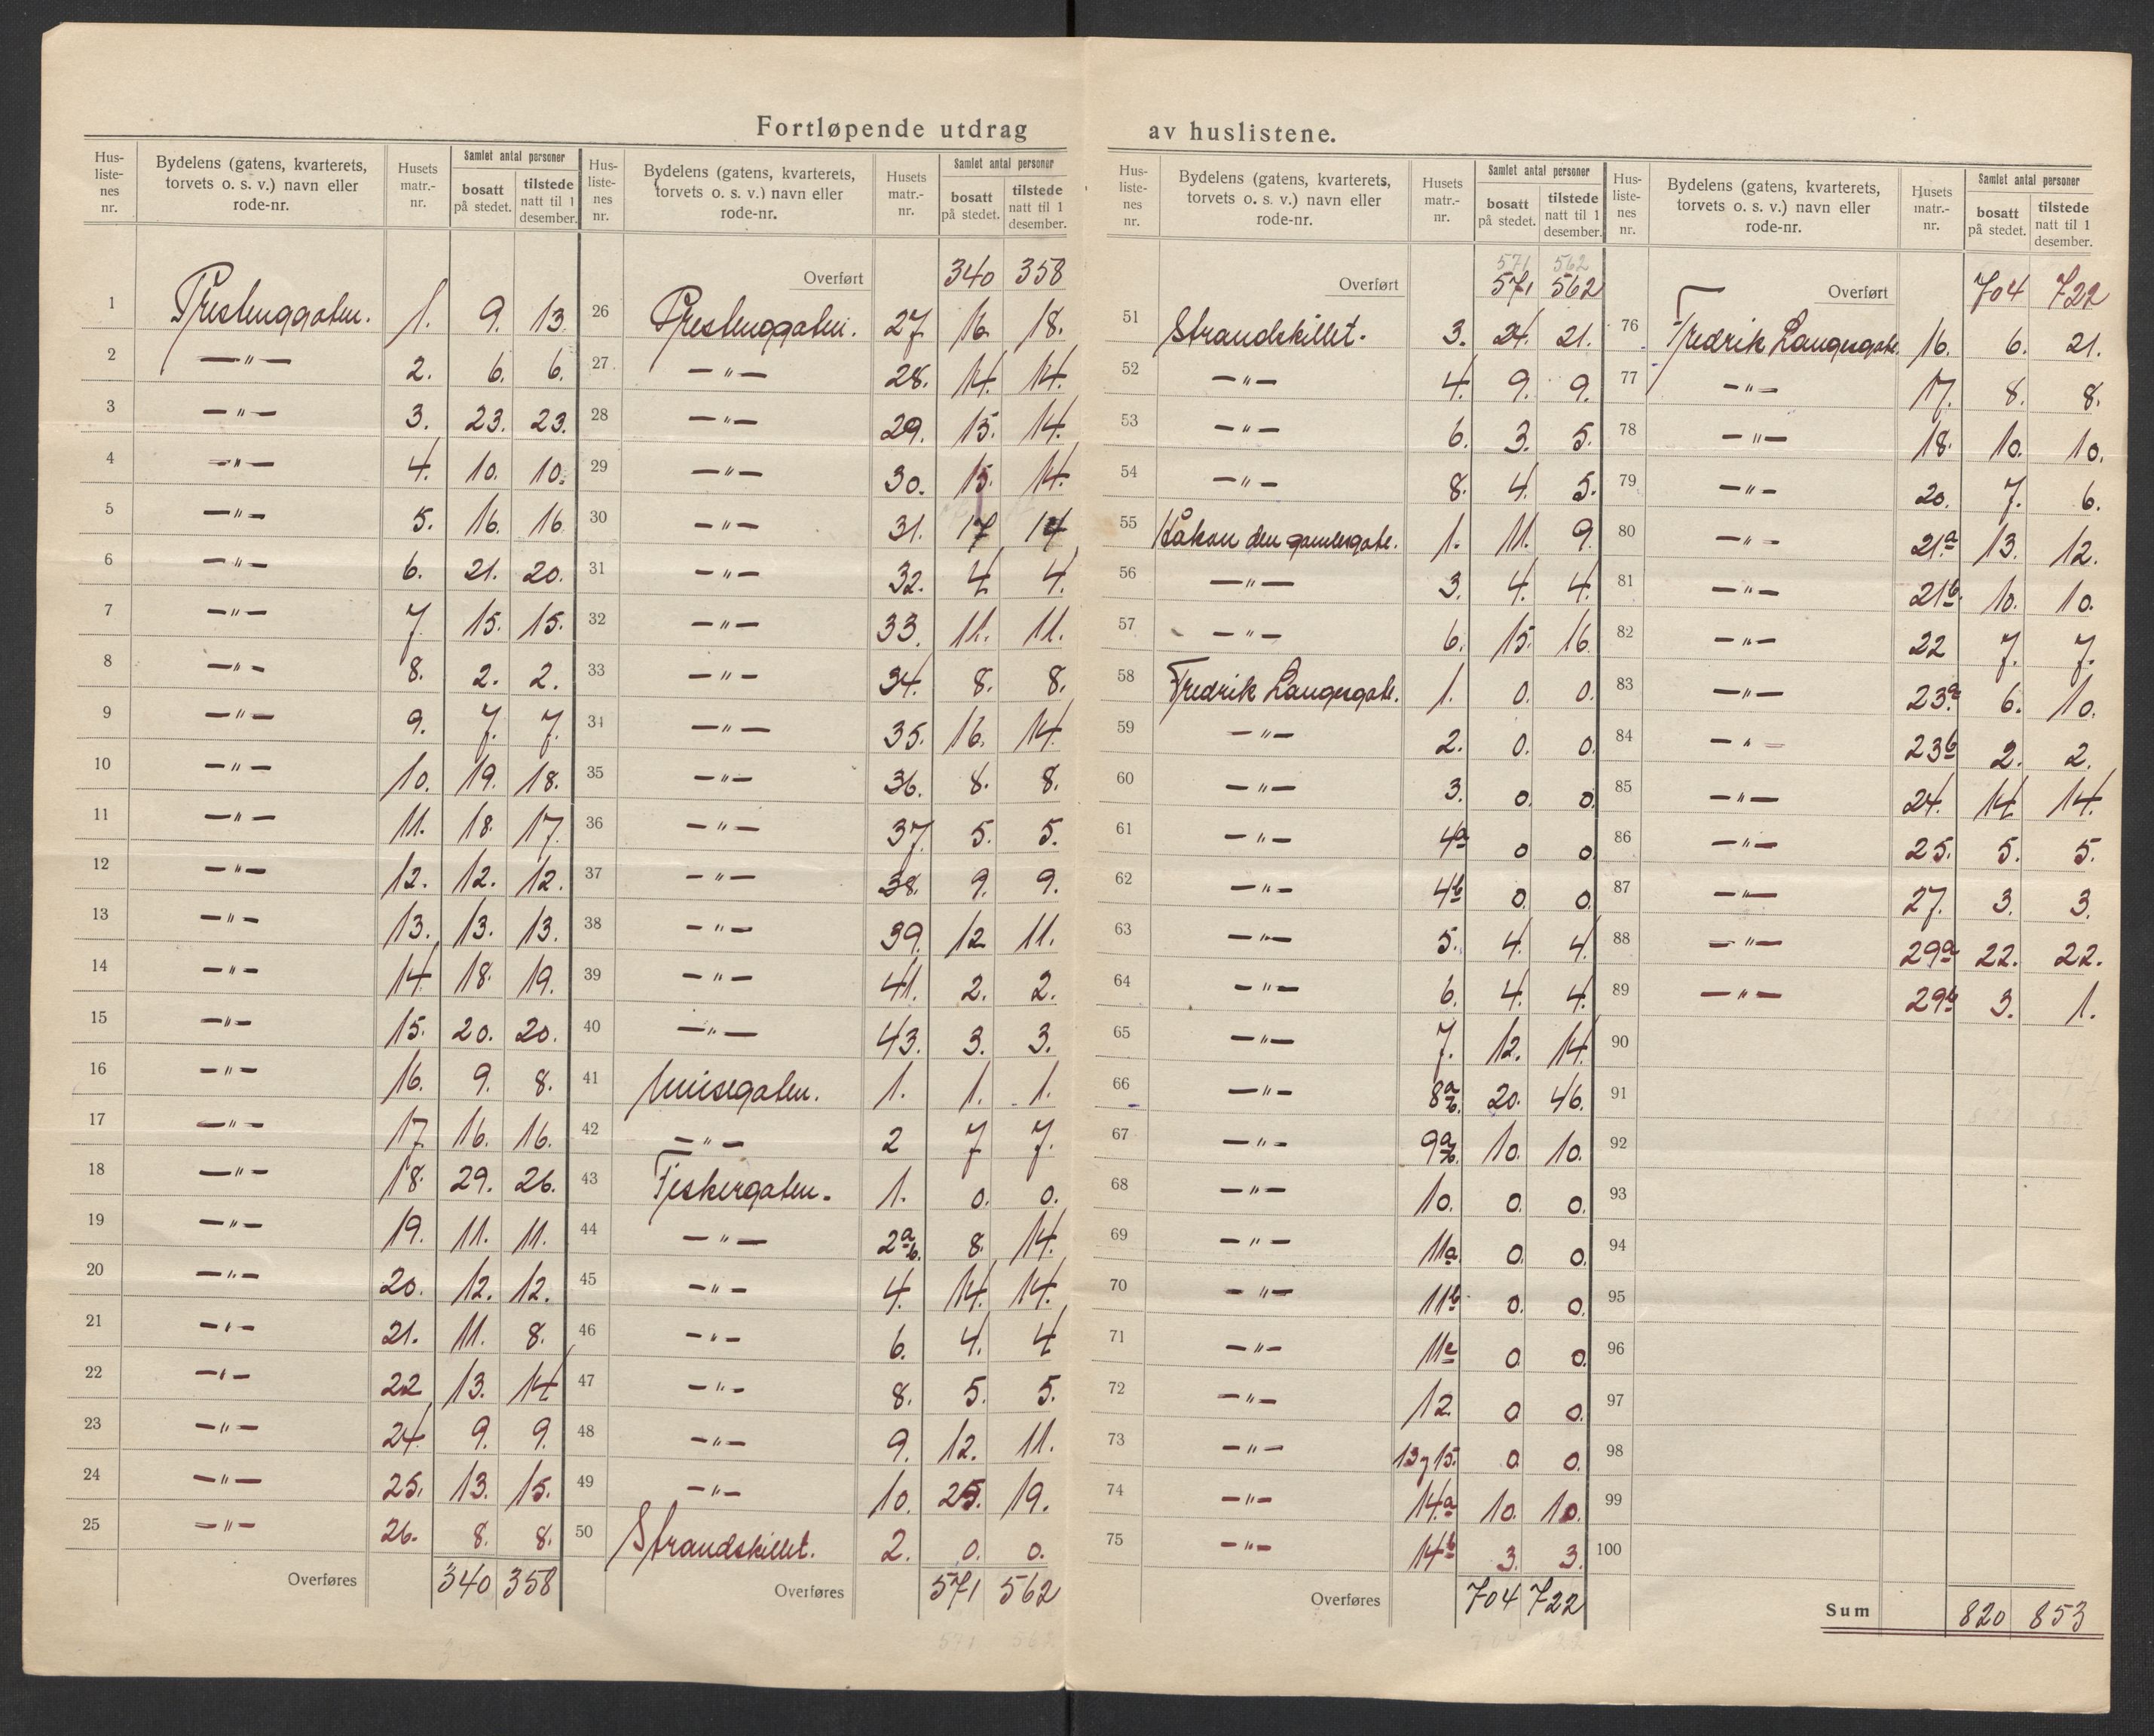 Fortløpende utdrag av huslistene.
Hus-liste-nes nr. Bydelens (gatens, kvarterets, torvets o. s. v.) navn eller rode-nr. Husets matr.-nr. Samlet antal personer bosatt på stedet. tilstede natt til 1 desember.
1 Prestenggaten. 1. 9. 13.
2 —"— 2. 6. 6.
3 —"— 3. 23. 23.
4 —"— 4. 10. 10.
5 —"— 5. 16. 16.
6 —"— 6. 21. 20.
7 —"— 7 15. 15.
8 —"— 8. 2. 2.
9 —"— 9. 7. 7.
10 —"— 10. 19. 18.
11 —"— 11. 18. 17.
12 —"— 12. 12. 12.
13 —"— 13. 13. 13.
14 —"— 14 18. 19.
15 —"— 15. 20. 20.
16 —"— 16. 9. 8.
17 —"— 17 16. 16.
18 —"— 18. 29. 26.
19 —"— 19. 11. 11.
20 —"— 20. 12. 12.
21 —"— 21. 11. 8.
22 —"— 22 13. 14
23 —"— 24 9. 9.
24 —"— 25. 13. 15.
25 —"— 26. 8. 8.
Overføres 340 358
Hus-liste-nes nr. Bydelens (gatens, kvarterets, torvets o. s. v.) navn eller rode-nr. Husets matr.-nr. Samlet antal personer bosatt på stedet. tilstede natt til 1 desember.
Overført 340 358
26 Prestenggaten. 27 16. 18.
27 —"— 28. 14. 14.
28 —"— 29. 15. 14.
29 —"— 30. 15. 14.
30 —"— 31. 17 14
31 —"— 32. 4 4.
32 —"— 33. 11. 11.
33 —"— 34. 8. 8.
34 —"— 35. 16. 14.
35 —"— 36. 8. 8.
36 —"— 37. 5. 5.
37 —"— 38. 9. 9.
38 —"— 39. 12 11.
39 —"— 41. 2. 2.
40 —"— 43. 3. 3.
41 1. 1. 1.
42 —"— 2 7 7.
43 Fiskergaten. 1. 0. 0.
44 —"— 2 a/b. 8. 14.
45 —"— 4. 14. 14.
46 —"— 6. 4. 4
47 —"— 8. 5. 5.
48 —"— 9. 12. 11.
49 —"— 10. 25. 19.
50 Strandskillet. 2. 0. 0.
Overføres 571 562
571 562
Hus-liste-nes nr. Bydelens (gatens, kvarterets, torvets o. s. v.) navn eller rode-nr. Husets matr.-nr. Samlet antal personer bosatt på stedet. tilstede natt til 1 desember.
571 562
Overført 571 562
51 Strandskillet. 3. 24. 21.
52 —"— 4. 9. 9.
53 —"— 6. 3. 5.
54 —"— 8. 4. 5.
55 Håkon den gamlesgate. 1. 11. 9.
56 —"— 3. 4. 4.
57 —"— 6. 15. 16
58 Fredrik Langesgate. 1. 0. 0.
59 —"— 2. 0. 0.
60 —"— 3. 0. 0.
61 —"— 4a 0 0.
62 —"— 4b 0. 0.
63 —"— 5. 4. 4.
64 —"— 6. 4. 4.
65 —"— 7. 12. 14.
66 —"— 8 a/b. 20. 46.
67 —"— 9 a/b. 10. 10.
68 —"— 10. 0. 0.
69 —"— 11a 0. 0.
70 —"— 11b 0. 0.
71 —"— 11c 0. 0.
72 —"— 12 0 0.
73 —"— 13 g 15. 0. 0.
74 —"— 14a 10. 10.
75 —"— 14b 3. 3.
Overføres 704 722
Hus-liste-nes nr. Bydelens (gatens, kvarterets, torvets o. s. v.) navn eller rode-nr. Husets matr.-nr. Samlet antal personer bosatt på stedet. tilstede natt til 1 desember.
Overført 704 722
76 Fredrik Langesgate. 16. 6. 21.
77 —"— 17. 8. 8.
78 —"— 18. 10. 10.
79 —"— 20. 7. 6.
80 —"— 21a 13. 12.
81 —"— 21b. 10. 10.
82 —"— 22 7. 7.
83 —"— 23a 6. 10.
84 —"— 23b 2. 2.
85 —"— 24. 14 14.
86 —"— 25. 5. 5.
87 —"— 27. 3. 3.
88 —"— 29a 22. 22.
89 —"— 29b 3. 1.
90
91
92
93
94
95
96
97
98
99
100
Sum 820 853